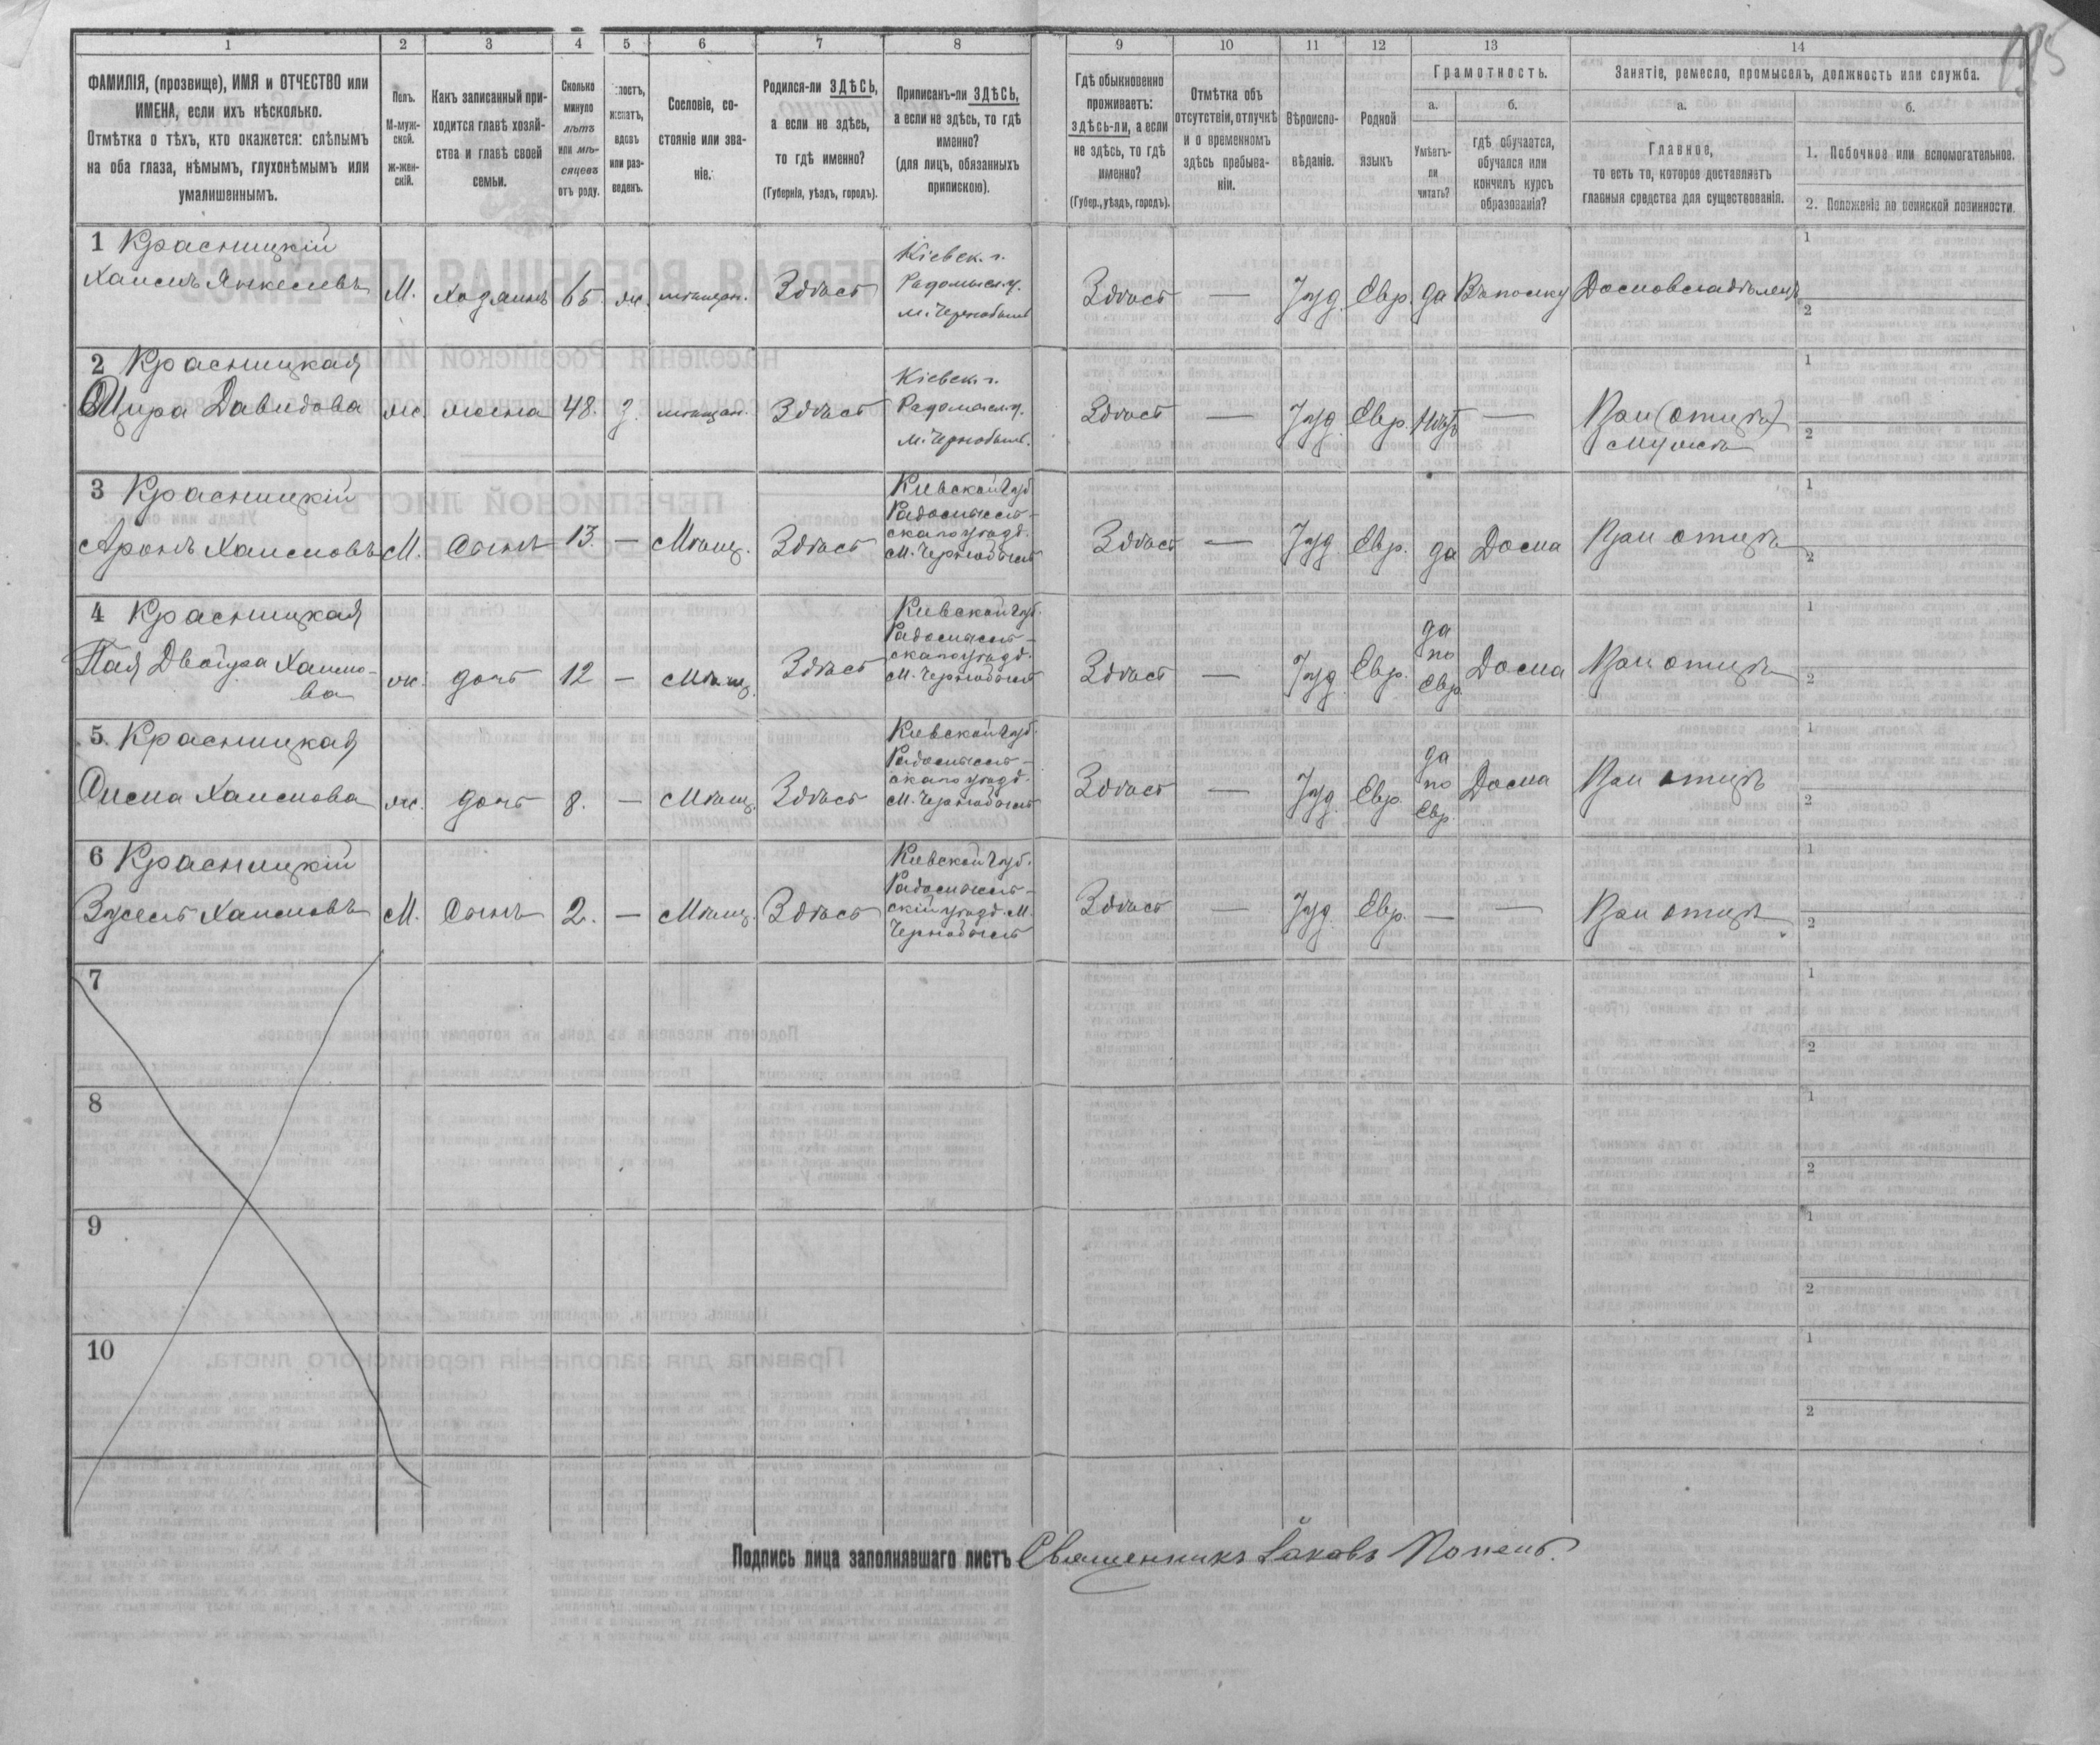 1 2 3 4 5 6 7 8 9 10 11 12 13 14
ФАМИЛІЯ, (прозвище), ИМЯ и ОТЧЕСТВО или
ИМЕНА, если ихъ нѣсколько.
Отмѣтка о тѣхъ, кто окажется: слѣпымъ
на оба глаза, нѣмымъ, глухонѣмымъ или
умалишеннымъ.
Полъ.
М-муж-
ской.
ж-жен-
скій.
Какъ записанный при-
ходится главѣ хозяй-
ства и главѣ своей
семьи.
Сколько
минуло
лѣтъ
или мѣ-
сяцевъ
отъ роду.
лостъ,
женатъ,
вдовъ
или раз-
веденъ.
Сословіе, со-
стояніе или зва-
ніе.
Родился-ли ЗДѢСЬ,
а если не здѣсь,
то гдѣ именно?
(Губернія, уѣздъ, городъ).
Приписанъ-ли ЗДѢСЬ,
а если не здѣсь, то гдѣ
именно?
(для лицъ, обязанныхъ
припискою).
Гдѣ обыкновенно
проживаетъ:
здѣсь-ли, а если
не здѣсь, то гдѣ
именно?
(Губер., уѣздъ, городъ).
Отмѣтка объ
отсутствіи, отлучкѣ
и о временномъ
здѣсь пребыва-
ніи.
Вѣроиспо-
вѣданіе.
Родной
языкъ
Грамотность.
а.
Умѣетъ-
ли
читать?
б.
гдѣ обучается,
обучался или
кончилъ курсъ
образованія?
Занятіе, ремесло, промыселъ, должность или служба.
а.
Главное,
то есть то, которое доставляетъ
главныя средства для существованія.
б.
1. Побочное или вспомогательное.
2. Положеніе по воинской повинности.
1 Красницкій
Хаимъ Янкелевъ
М. хозяинъ 65 ж. мѣщан. Здѣсь
Кіевск. г.
Радомысл.у.
м. Чернобыль
Здѣсь — Іуд. Евр. да
1
2
2 Красницкая
Шира Давидова
ж. жена 48. З. мѣщан. Здѣсь
Кіевск. г.
Радомысл.у.
м. Чернобыль.
Здѣсь — Іуд. Евр. Нѣтъ —
1
2
3 Красницкій
Аронъ Хаимовъ
М. Сынъ 13 — Мѣщ. Здѣсь
Кіевской губ.
Радомысль-
скаго уѣзд.
М. Чернобыль
Здѣсь — Іуд. Евр. да Дома При отцѣ
1
2
4 Красницкая
Двойра Хаимо-
ва
ж. дочь 12 — Мѣщ. Здѣсь
Кіевской губ.
Радомысль-
скаго уѣзд.
М. Чернобыль
Здѣсь — Іуд. Евр.
да
по
Евр.
Дома При отцѣ
1
2
5. Красницкая
Сима Хаимова
ж. дочь 8. — Мѣщ. Здѣсь
Кіевской губ.
Радомысль-
скаго уѣзд.
М. Чернобыль
Здѣсь — Іуд. Евр.
да
по
Евр.
Дома При отцѣ
1
2
6 Красницкій
Зусель Хаимовъ
М. Сынъ 2. — Мѣщ. Здѣсь
Кіевской губ.
Радомысль-
скій уѣзд. М.
Чернобыль
Здѣсь — Іуд. Евр. — — При отцѣ
1
2
7
1
2
8
1
2
9
1
2
10
1
2
Подпись лица заполнявшаго листъ Священникъ Іаковъ